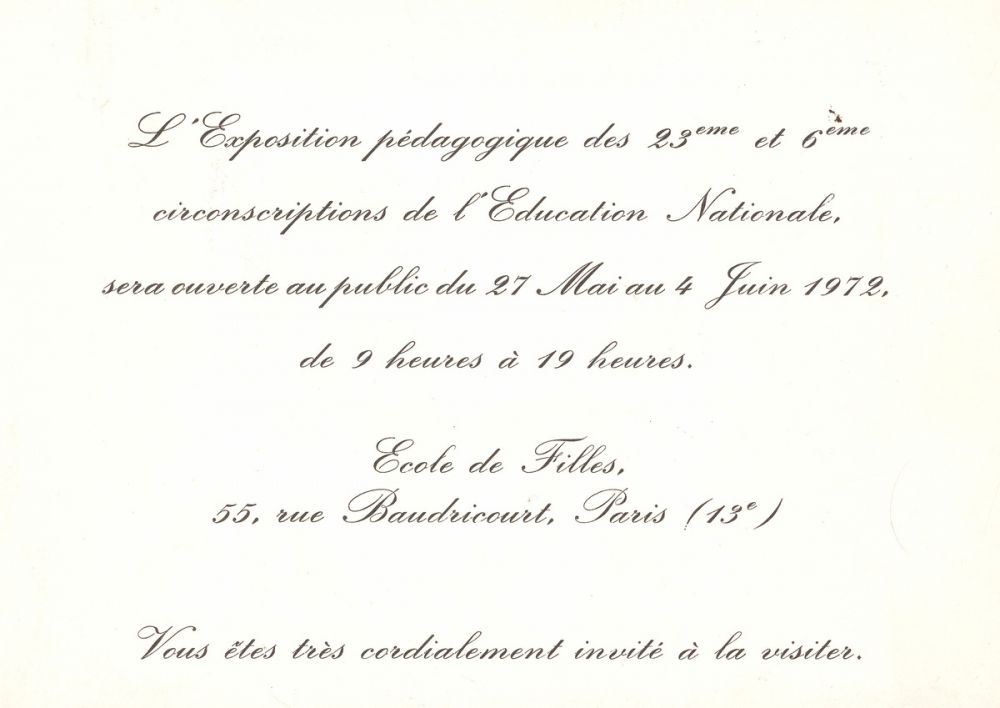 L'Exposition pédagogique des 23eme et 6ème
circonscriptions de l'Education Nationale,
sera ouverte au public du 27 Mai au 4 Juin 1972,
de 9 heures à 19 heures.
Ecole de Filles,
55, rue Baudricourt, Paris (13e)
Vous êtes très cordialement invité à la visiter.